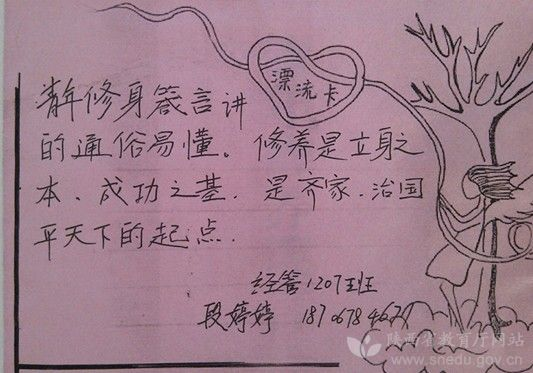 漂流卡
青年修身箴言讲
的通俗易懂。修养是立身之
本、成功之基，是齐家、治国
平天下的起点.
经管1207班
段婷婷
陕西省教育厅网站
www.snedu.gov.cn